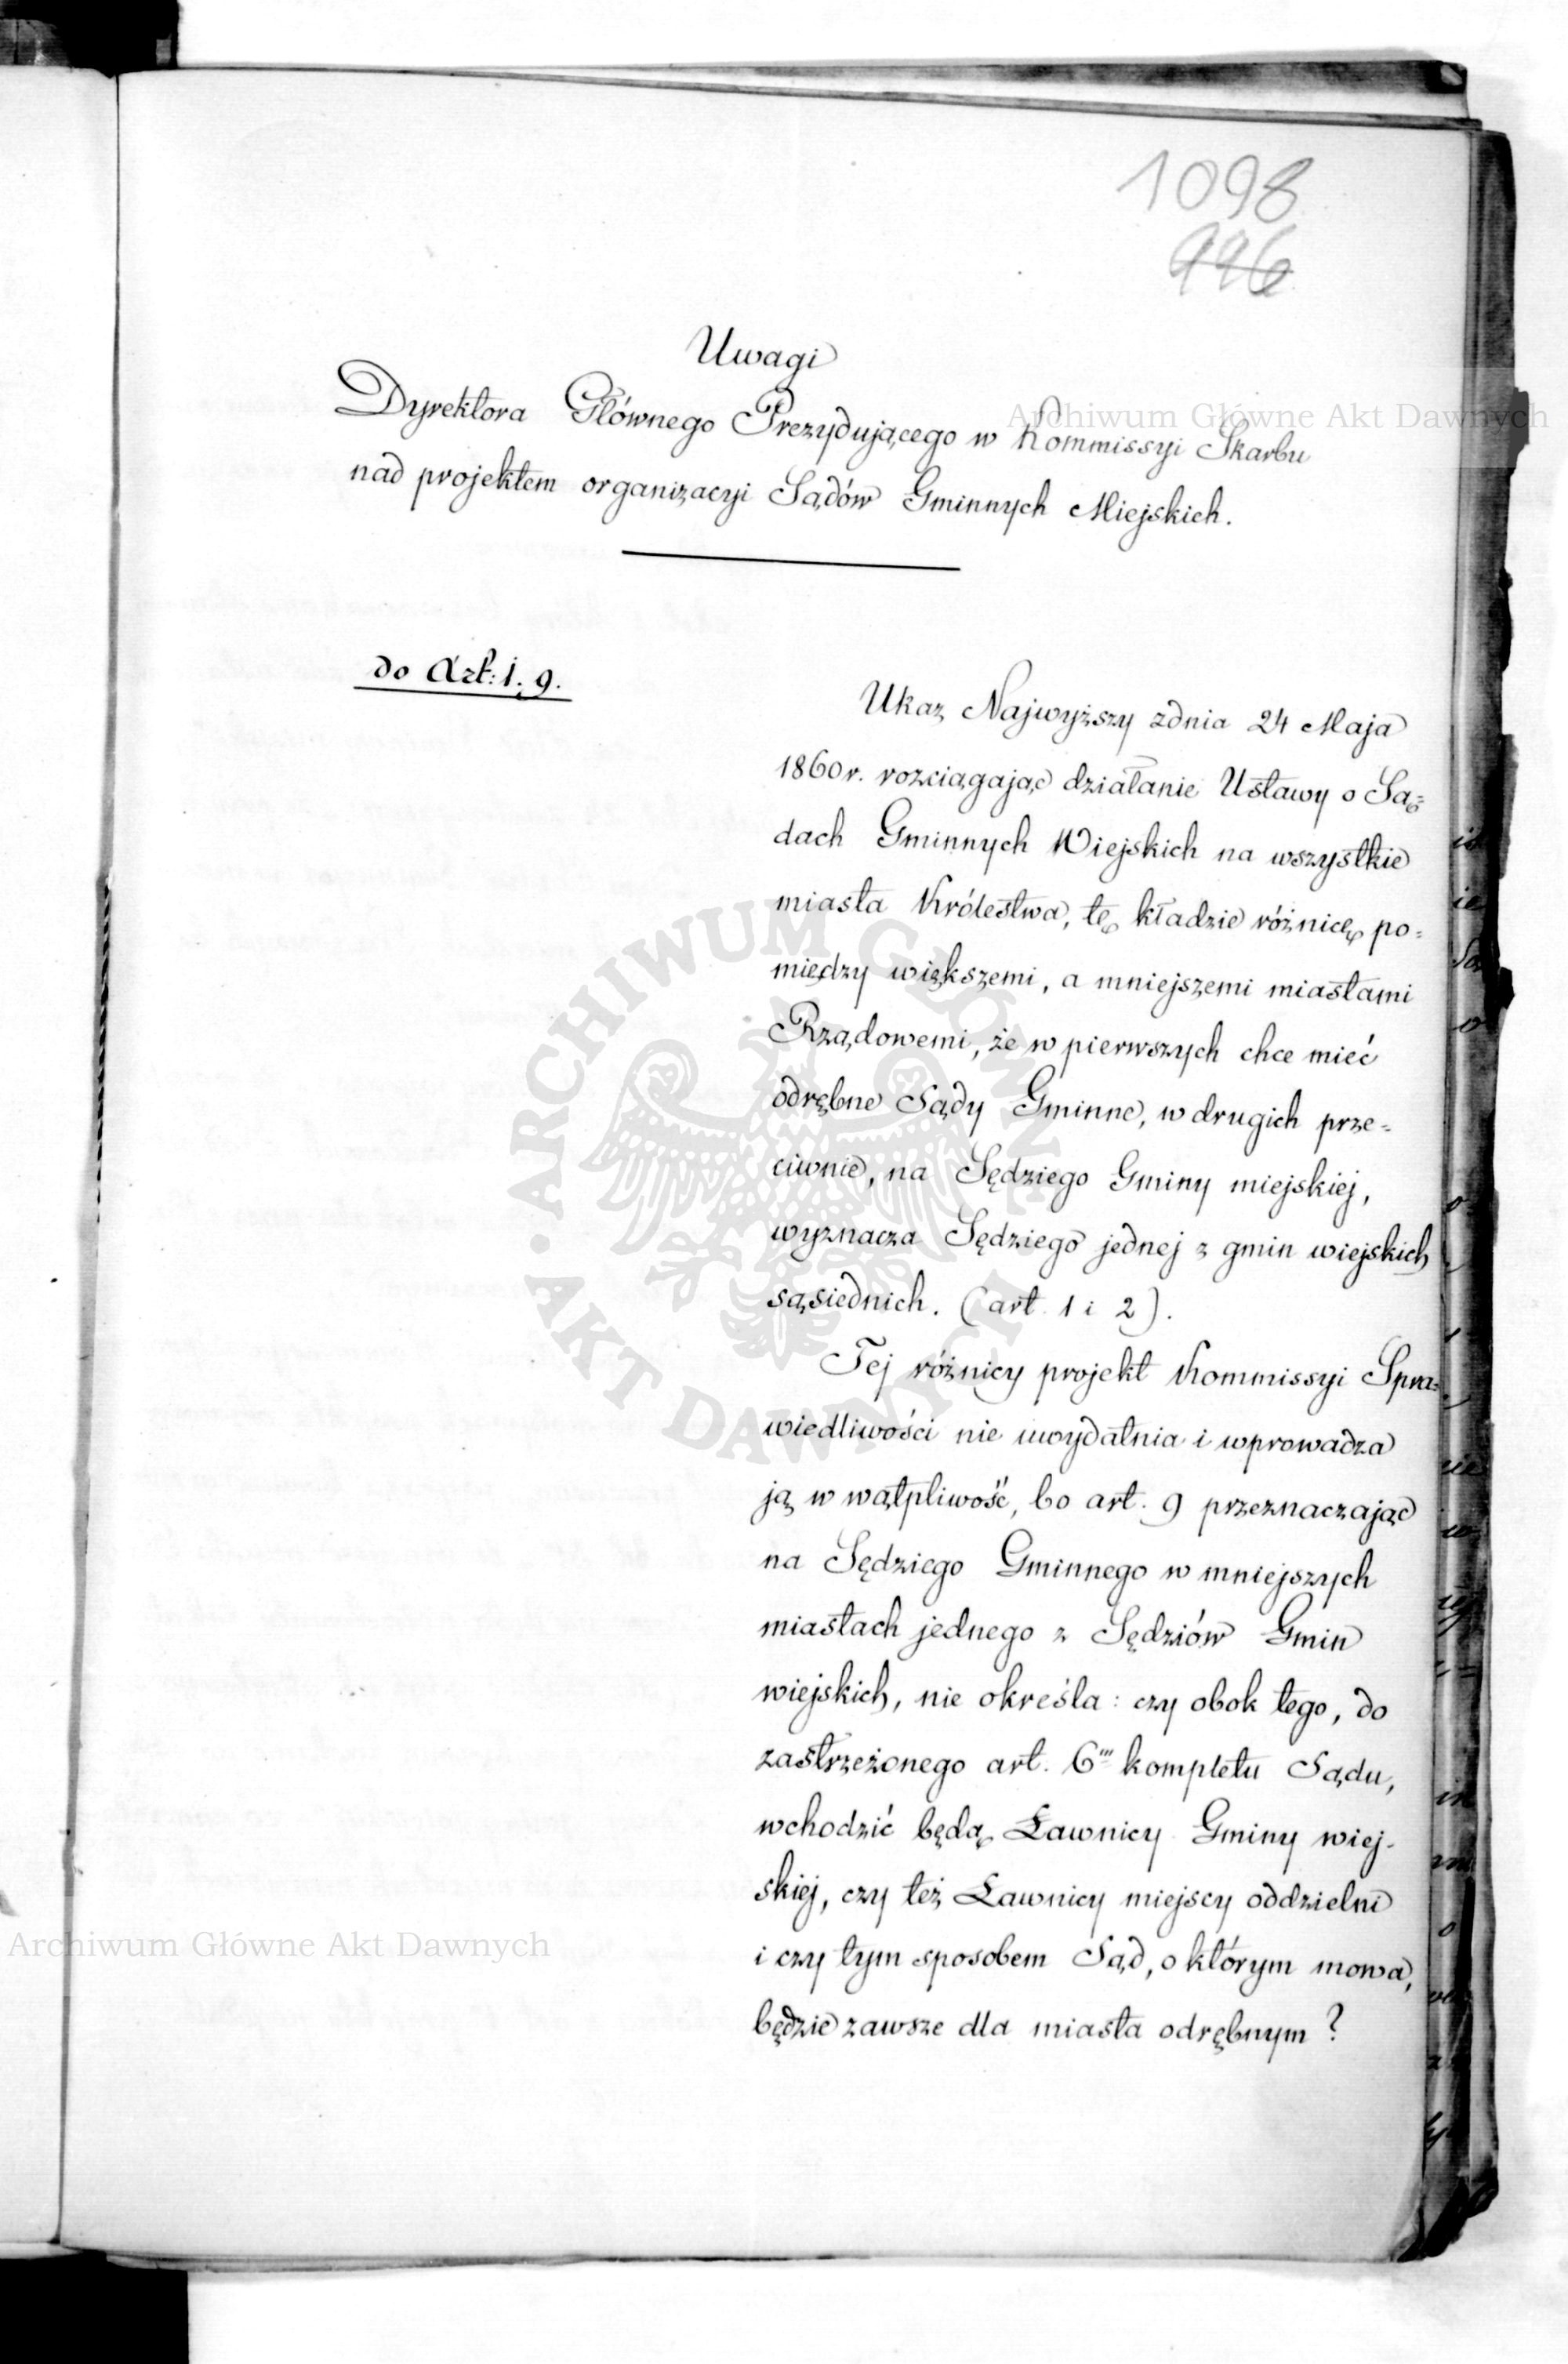 1098
996
Uwagi
Dyrektora Głównego Prezydującego w Kommissyi Skarbu
nad projektem organizacyi Sądów Gminnych Miejskich.
do Art: 1. 9.
Ukaz Najwyższy z dnia 24 Maja
1860 r. rozciągając działanie Ustawy o Są=
dach Gminnych Wiejskich na wszystkie
miasta Królestwa, tę kładzie różnicę po=
między większemi, a mniejszemi miastami
Rządowemi, że w pierwszych chce mieć
odrębne Sądy Gminne, w drugich prze=
ciwnie, na Sędziego Gminy miejskiej,
wyznacza Sędziego jednej z gmin wiejskich
sąsiednich. (art. 1 i 2).
Tej różnicy projekt Kommissyi Spra=
wiedliwości nie uwydatnia i wprowadza
ją w wątpliwość, bo art. 9 przeznaczając
na Sędziego Gminnego w mniejszych
miastach jednego z Sędziów Gmin
wiejskich, nie określa: czy obok tego, do
zastrzeżonego art. 6m kompletu Sądu,
wchodzić będą Ławnicy Gminy wiej-
skiej, czy też Ławnicy miejscy oddzielni
i czy tym sposobem Sąd, o którym mowa,
będzie zawsze dla miasta odrębnym?
Archiwum Główne Akt Dawnych
ARCHIWUM GŁÓWNE AKT DAWNYCH
Archiwum Główne Akt Dawnych